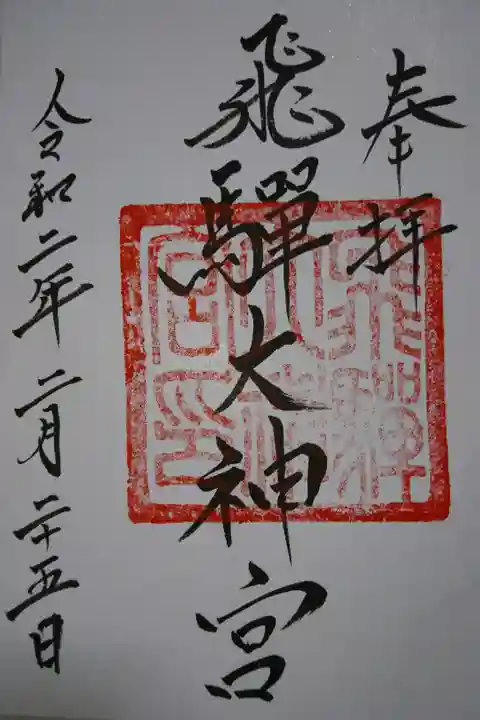 奉拝
飛驒大神宮
令和二年二月二十五日